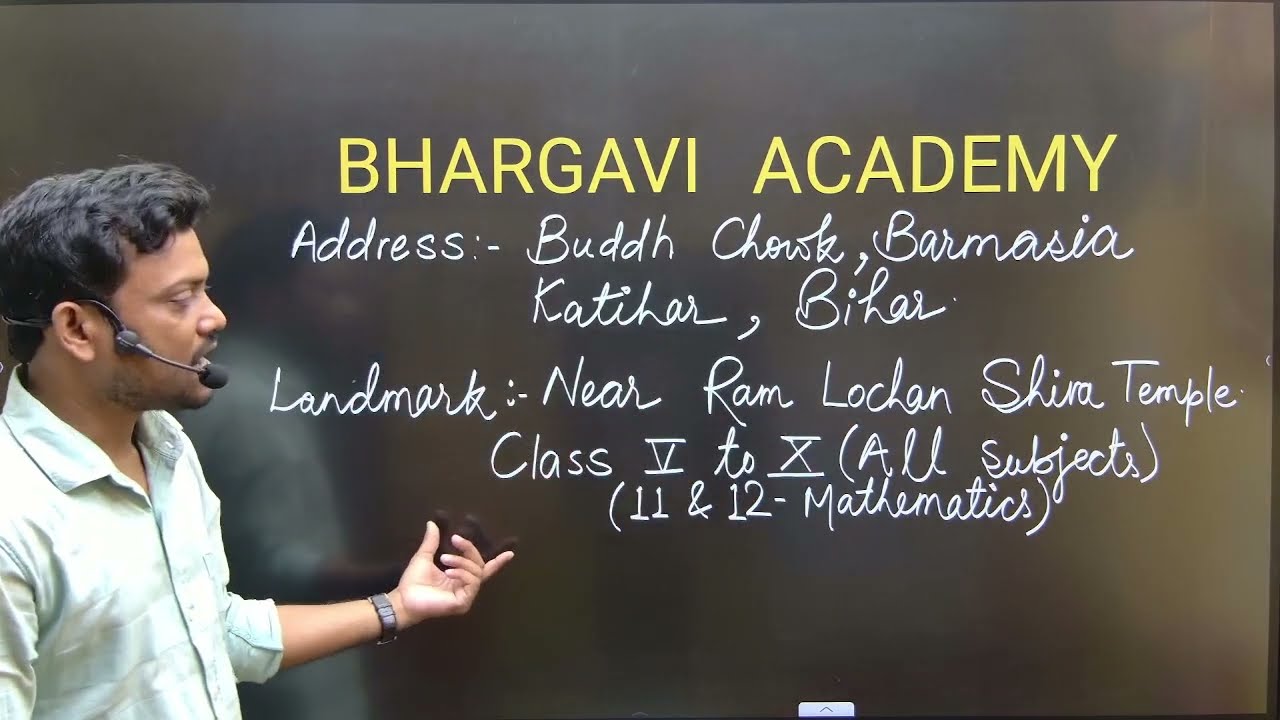 BHARGAVI ACADEMY
Address:- Buddh Chowk, Barmasia
Katihar, Bihar.
Landmark:- Near Ram Lochan Shiva Temple.
Class V to X (All Subjects)
(11 & 12- Mathematics)